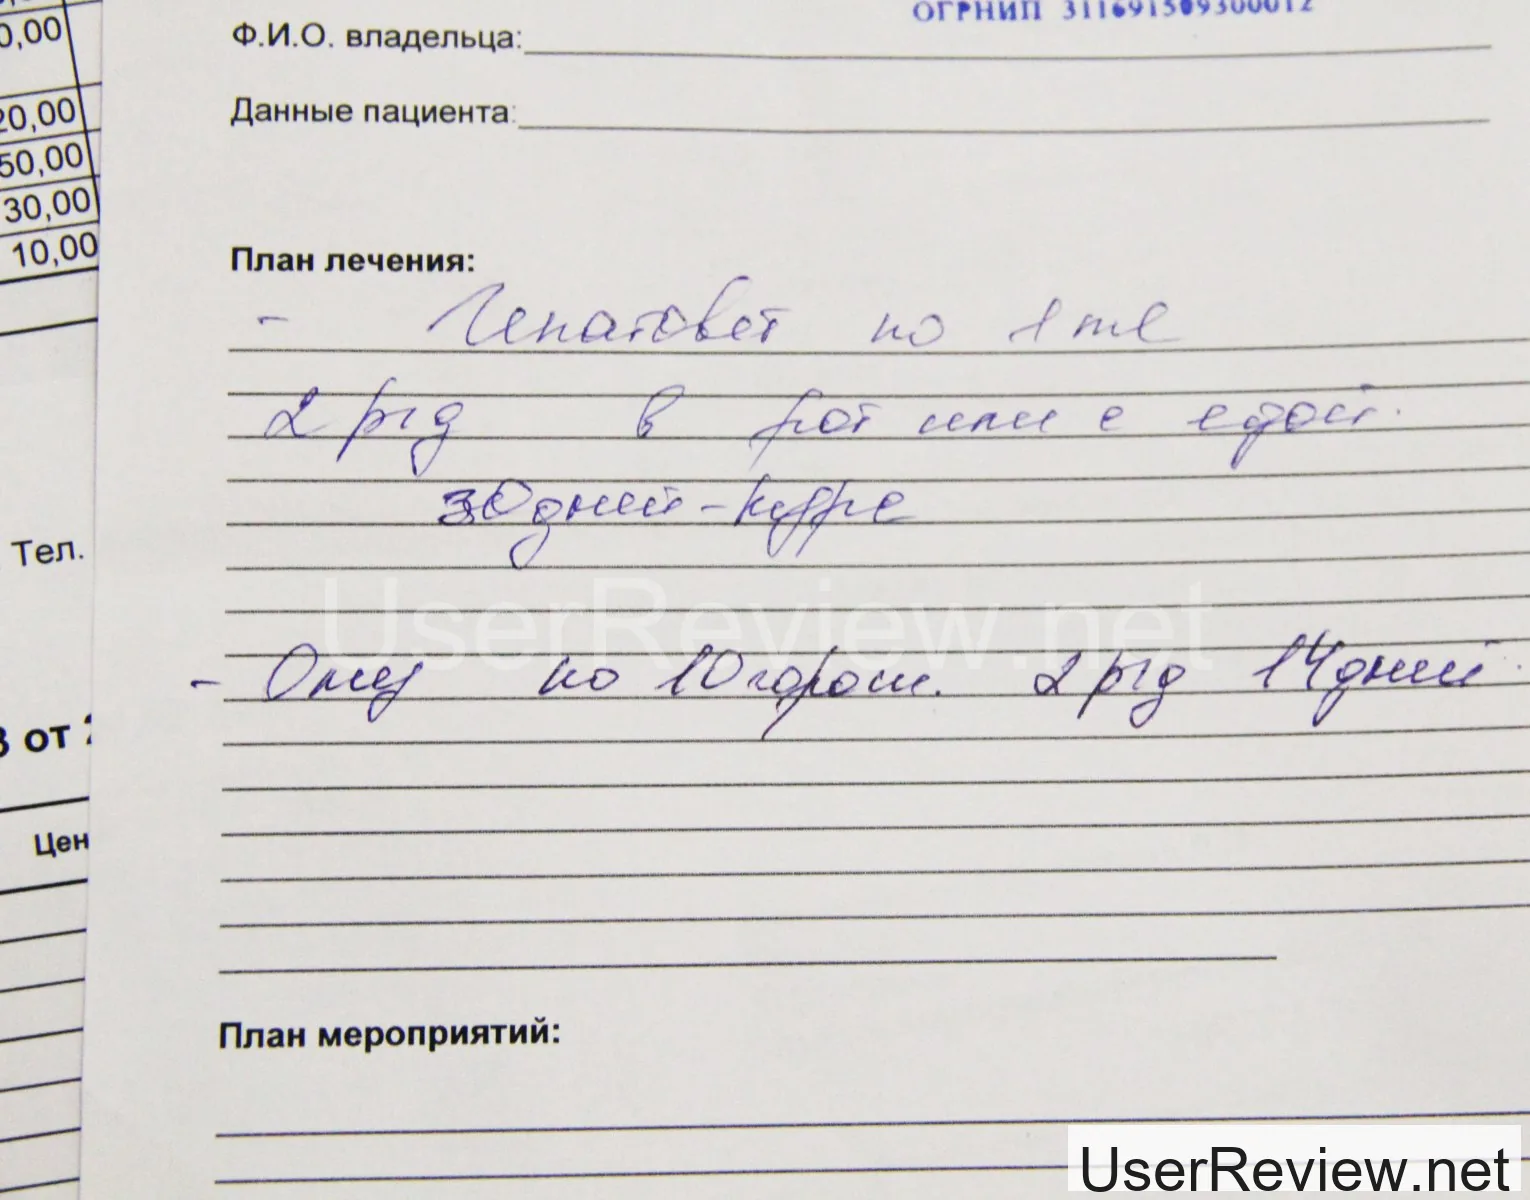 0,00
20,00
50,00
30,00
10,00
Тел.
3 от 2
Цен
ОГРНИП 311691509300012
Ф.И.О. владельца:
Данные пациента:
План лечения:
- Гепатовет по 1 ml
2 р/д в рот или с едой.
30 дней - курс
- по 10 горош. 2 р/д 14 дней.
План мероприятий:
UserReview.net
UserReview.net